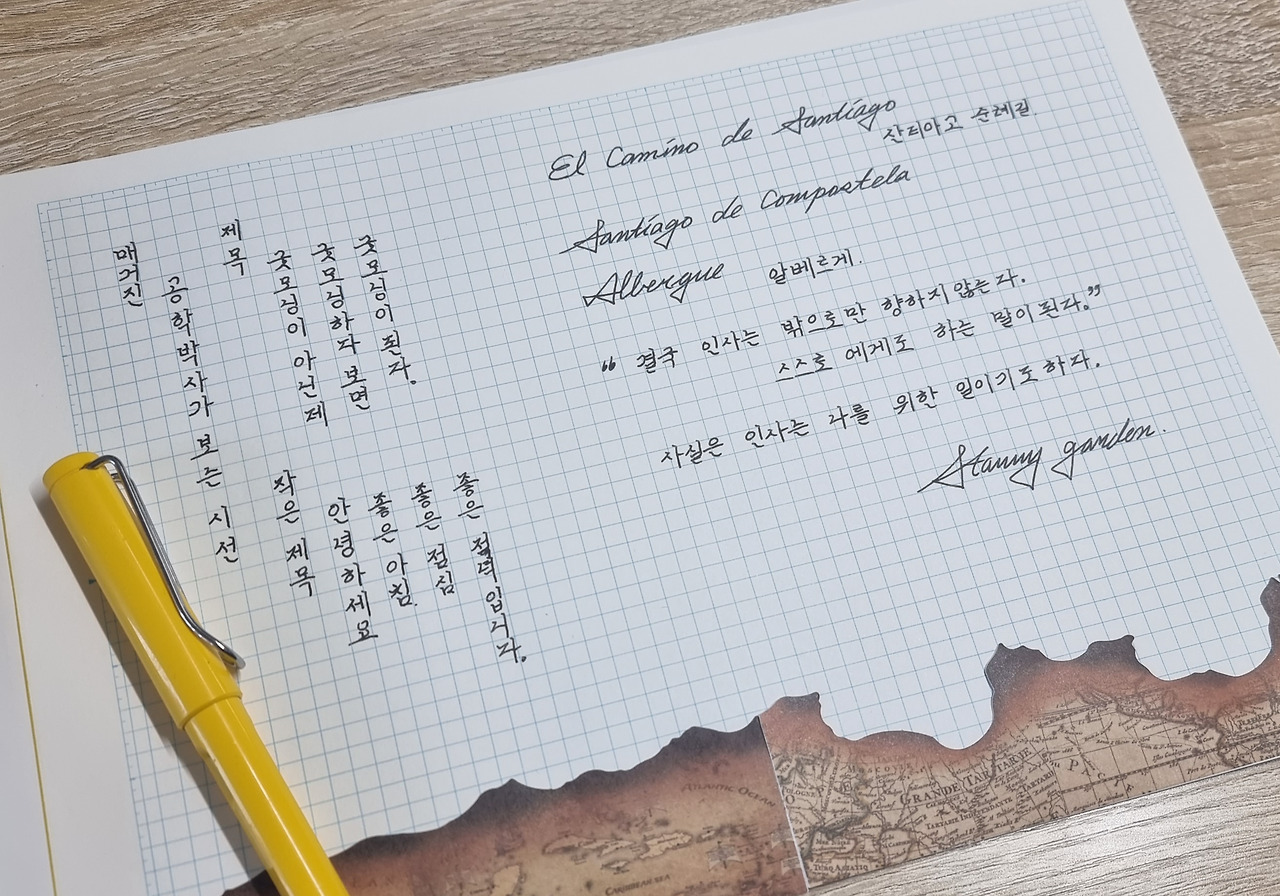 El Camino de Santiago
산티아고 순례길.
Santiago de Compostela
Albergue 알베르게.
“ 결국 인사는 밖으로만 향하지 않는다.
스스로에게도 하는 말이 된다.”
사실은 인사는 나를 위한 일이기도 하다.
Stanny garden.
매거진
공학박사가 보는 시선
제목
굿모닝이 아닌데
굿모닝하다 보면
굿모닝이 된다.
작은 제목
안녕하세요
좋은 아침.
좋은 점심
좋은 저녁입니다.
ATLANTIC OCEAN
CARIBBEAN SEA
GRANDE TARTARIE
TARTARIE INDEPENDANTE